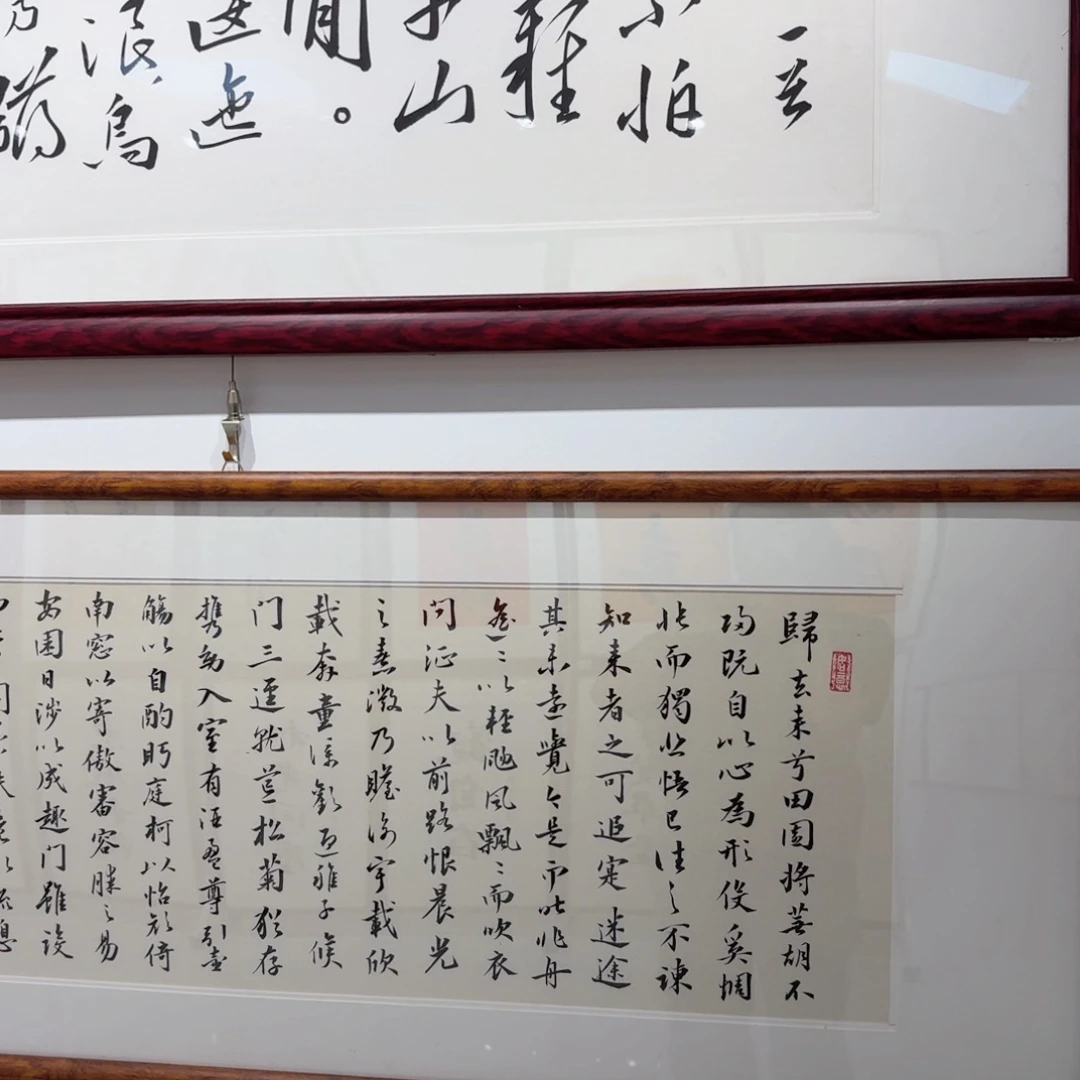 不怕
難
千山
閒。
逶迤
浪烏
歸去来兮田園將蕪胡不
归既自以心為形役奚惆
悵而獨悲悟已往之不諫
知来者之可追寔迷途
其未遠覺今是而昨非舟
遙〻以輕颺風飄〻而吹衣
问征夫以前路恨晨光
之熹微乃瞻衡宇載欣
載奔童僕歡迎稚子候
门三逕就荒松菊猶存
携幼入室有酒盈尊引壶
觴以自酌眄庭柯以怡颜倚
南窓以寄傲審容膝之易
安園日涉以成趣门雖設